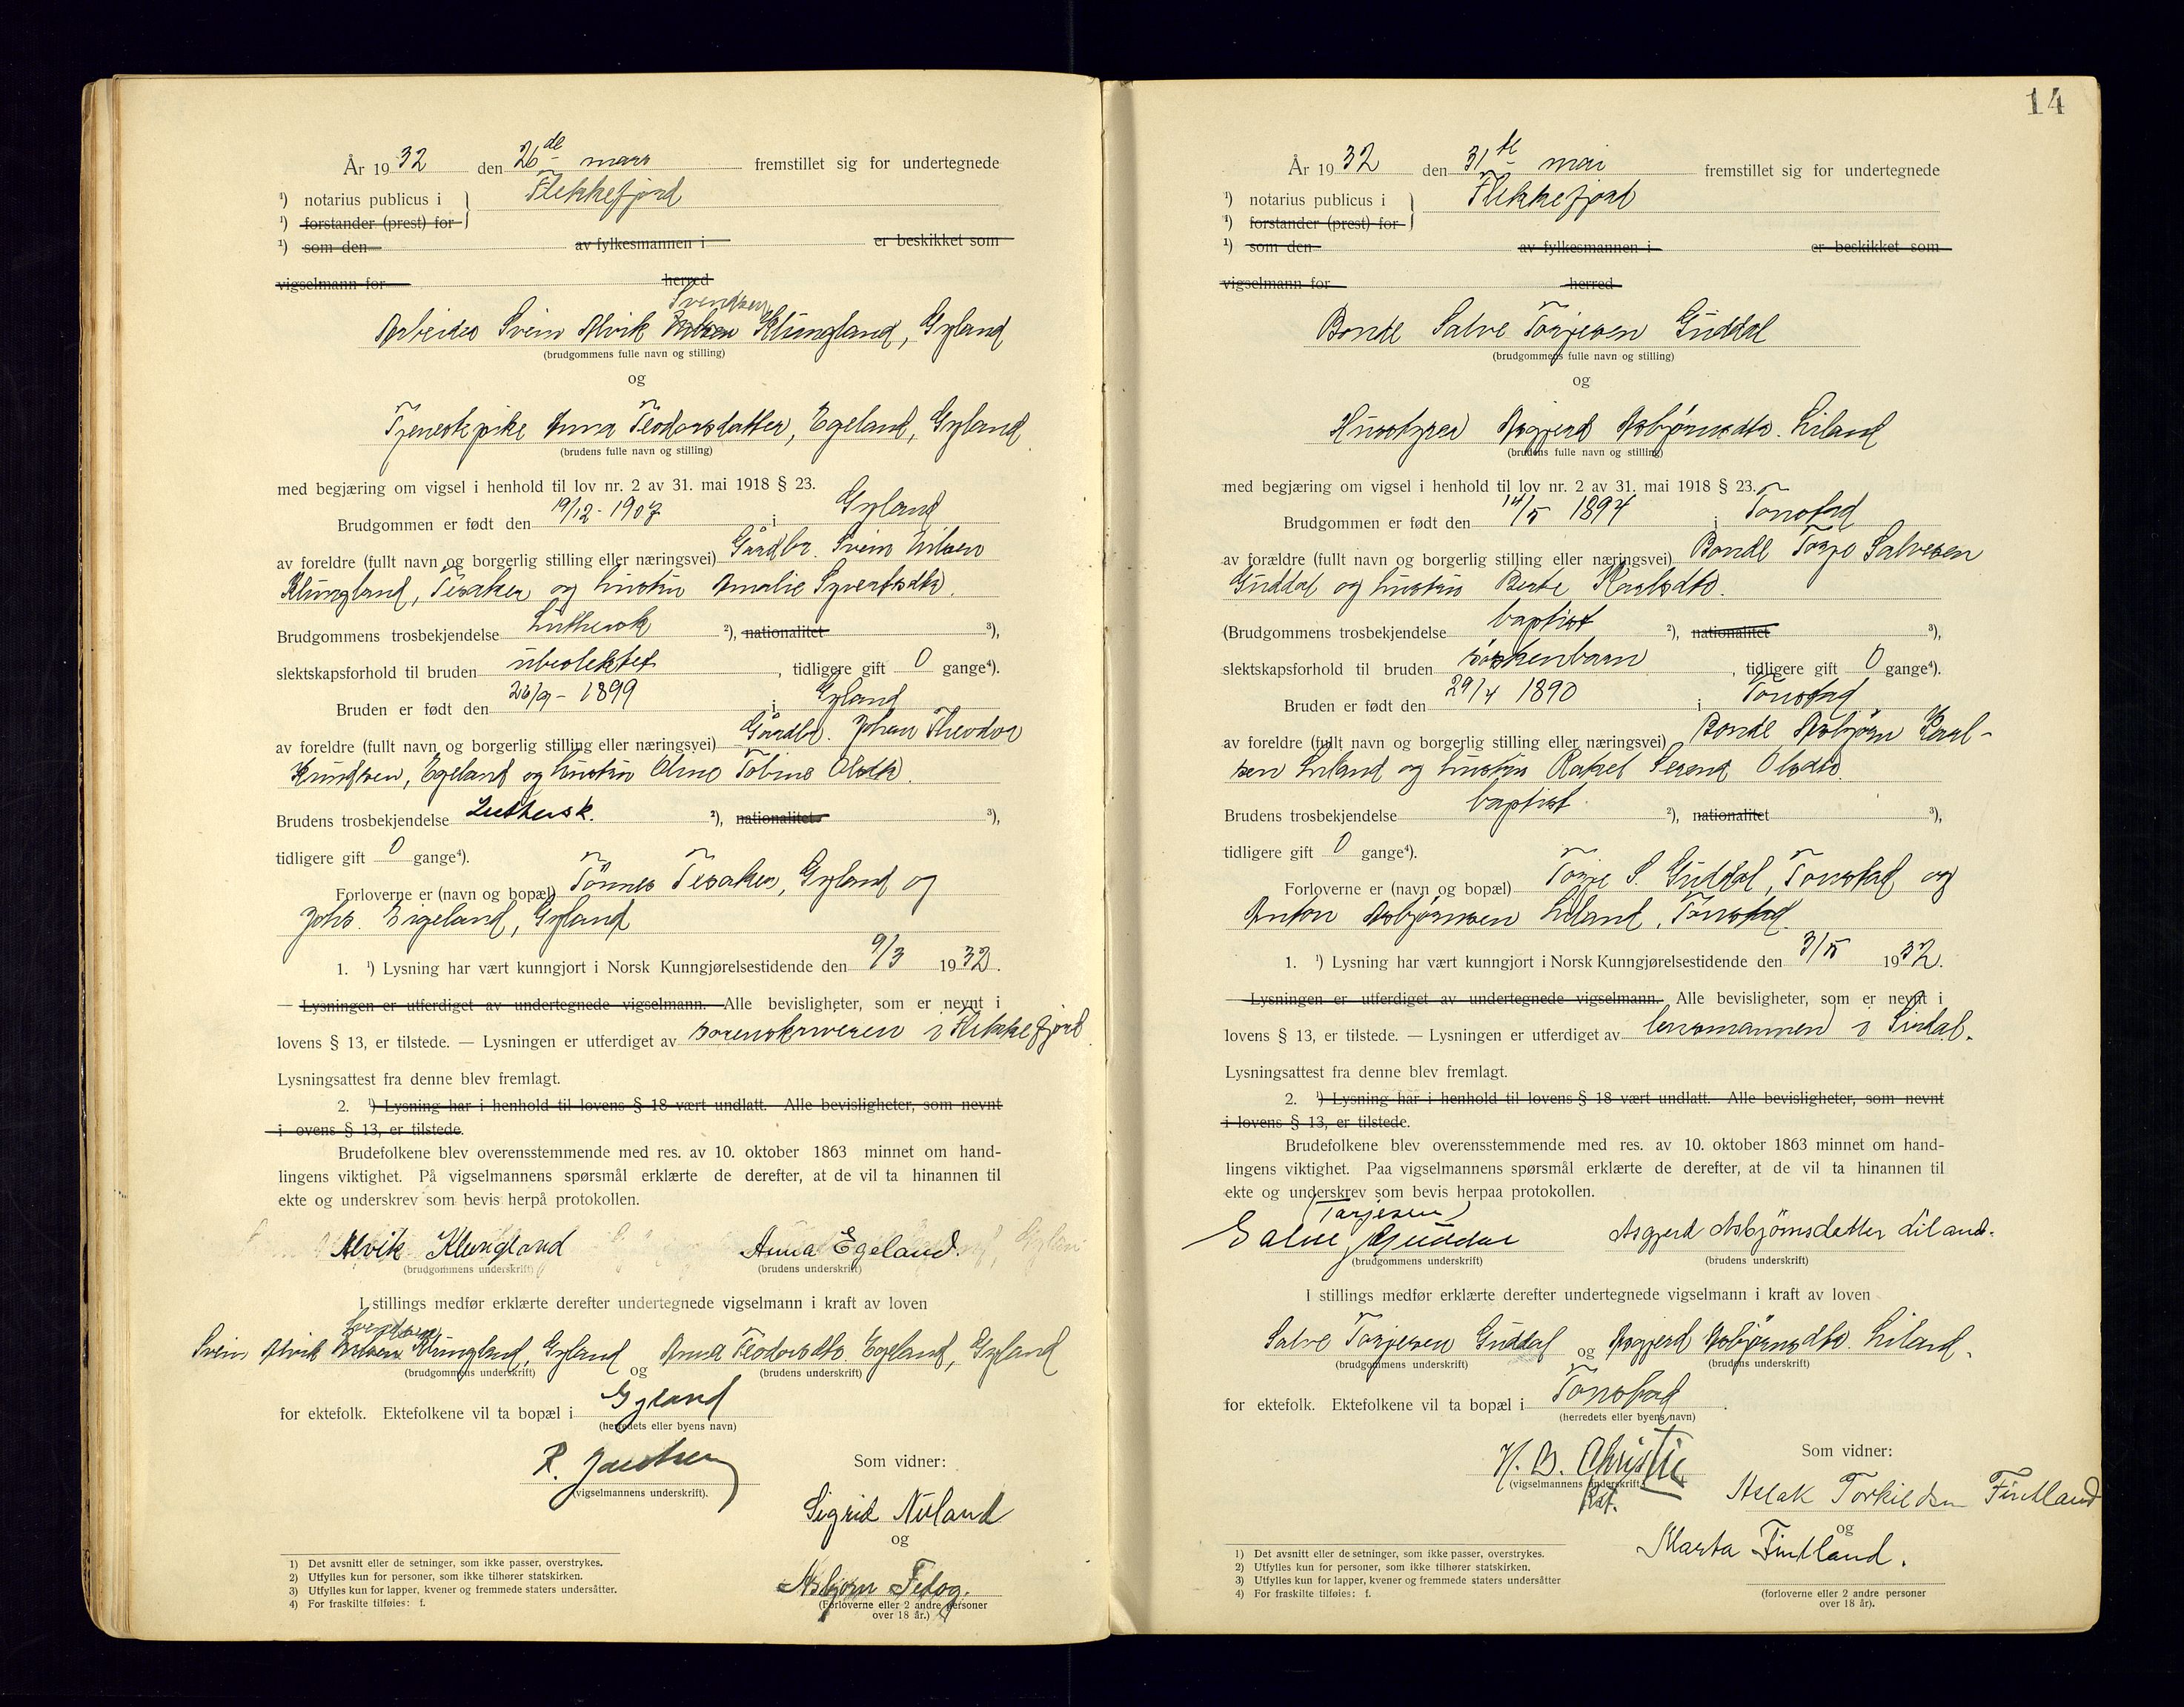 År 1932 den 26de mars fremstillet sig for undertegnede
¹) notarius publicus i } Flekkefjord
¹) forstander (prest) for
¹) som den av fylkesmannen i er beskikket som
vigselmann for herred
Svendsen
Arbeider Svein Alvik Klungland, Gyland
(brudgommens fulle navn og stilling)
og
Tjenestepike Anna Teodorsdatter, Egeland, Gyland
(brudens fulle navn og stilling)
med begjæring om vigsel i henhold til lov nr. 2 av 31. mai 1918 § 23.
Brudgommen er født den 19/12 - 1907 i Gyland
av foreldre (fullt navn og borgerlig stilling eller næringsvei) Gårdbr. Svein Eilsen
Klungland, Tesaker og hustru Amalie Syvertsdtr.
Brudgommens trosbekjendelse Luthersk ²), nationalitet ³),
slektskapsforhold til bruden ubeslektet, tidligere gift 0 gange⁴).
Bruden er født den 26/9 - 1899 i Gyland
av foreldre (fullt navn og borgerlig stilling eller næringsvei) Gårdbr. Johan Theodor
Knudsen, Egeland og hustru Tobine Olsdtr.
Brudens trosbekjendelse Luthersk. ²), nationalitet ³),
tidligere gift 0 gange⁴).
Forloverne er (navn og bopæl) Tönnes Tesaker, Gyland og
Johs. Eigeland, Gyland
1. ¹) Lysning har vært kunngjort i Norsk Kunngjørelsestidende den 9/3 1932.
— Lysningen er utferdiget av undertegnede vigselmann. Alle bevisligheter, som er nevnt i
lovens § 13, er tilstede. — Lysningen er utferdiget av sorenskriveren i Flekkefjord
Lysningsattest fra denne blev fremlagt.
2. ¹) Lysning har i henhold til lovens § 18 vært undlatt. Alle bevisligheter, som nevnt
i ovens § 13, er tilstede.
Brudefolkene blev overensstemmende med res. av 10. oktober 1863 minnet om hand-
lingens viktighet. På vigselmannens spørsmål erklærte de derefter, at de vil ta hinannen til
ekte og underskrev som bevis herpå protokollen.
Alvik Klungland Anna Egeland.
(brudgommens underskrift) (brudens underskrift)
I stillings medfør erklærte derefter undertegnede vigselmann i kraft av loven
Svendsen
Svein Alvik Klungland, Gyland og Anna Teodorsdtr. Egeland, Gyland
(brudgommens underskrift) (brudens underskrift)
for ektefolk. Ektefolkene vil ta bopæl i Gyland
(herredets eller byens navn)
R. Jacobsen
(vigselmannens underskrift).
Som vidner:
Sigrid Nuland
og
Asbjørn Fedog.
(Forloverne eller 2 andre personer
over 18 år.)
1) Det avsnitt eller de setninger, som ikke passer, overstrykes.
2) Utfylles kun for personer, som ikke tilhører statskirken.
3) Utfylles kun for lapper, kvener og fremmede staters undersåtter.
4) For fraskilte tilføies: f.
14
År 1932 den 31te mai fremstillet sig for undertegnede
¹) notarius publicus i } Flekkefjord
¹) forstander (prest) for
¹) som den av fylkesmannen i er beskikket som
vigselmann for herred
Bonde Salve Torjesen Guddal
(brudgommens fulle navn og stilling)
og
Husstyrer Asgjerd Asbjørnsdtr. Liland
(brudens fulle navn og stilling)
med begjæring om vigsel i henhold til lov nr. 2 av 31. mai 1918 § 23.
Brudgommen er født den 14/5 1894 i Tonstad
av forældre (fullt navn og borgerlig stilling eller næringsvei) Bonde Torje Salvesen
Guddal og hustru Berte Karlsdtr.
(Brudgommens trosbekjendelse baptist ²), nationalitet ³),
slektskapsforhold til bruden søskenbarn, tidligere gift 0 gange⁴).
Bruden er født den 29/4 1890 i Tonstad
av foreldre (fullt navn og borgerlig stilling eller næringsvei) Bonde Asbjørn Karl-
sen Liland og hustru Rakel Serene Olsdtr.
Brudens trosbekjendelse baptist ²), nationalitet ³),
tidligere gift 0 gange⁴).
Forloverne er (navn og bopæl) Torje S. Guddal, Tonstad og
Anton Asbjørnsen Liland, Tonstad.
1. ¹) Lysning har vært kunngjort i Norsk Kunngjørelsestidende den 3/5 1932.
Lysningen er utferdiget av undertegnede vigselmann. Alle bevisligheter, som er nevnt i
lovens § 13, er tilstede. — Lysningen er utferdiget av lensmannen i Sirdal.
Lysningsattest fra denne blev fremlagt.
2. ¹) Lysning har i henhold til lovens § 18 vært undlatt. Alle bevisligheter, som nevnt
i lovens § 13, er tilstede.
Brudefolkene blev overensstemmende med res. av 10. oktober 1863 minnet om hand-
lingens viktighet. Paa vigselmannens spørsmål erklærte de derefter, at de vil ta hinannen til
ekte og underskrev som bevis herpaa protokollen.
(Tarjesen)
Salve Guddal Asgjerd Asbjörnsdatter Liland.
(brudgommens underskrift) (brudens underskrift)
I stillings medfør erklærte derefter undertegnede vigselmann i kraft av loven
Salve Torjesen Guddal og Asgjerd Asbjørnsdtr. Liland.
(brudgommens underskrift) (brudens underskrift)
for ektefolk. Ektefolkene vil ta bopæl i Tonstad.
(herredets eller byens navn)
H. B. Christie
(vigselmannens underskrift)
Kst.
Som vidner:
Aslak Torkildsen Fintland
og
Marta Fintland.
(forloverne eller 2 andre personer
over 18 år).
1) Det avsnitt eller de setninger, som ikke passer, overstrykes.
2) Utfylles kun for personer, som ikke tilhører statskirken.
3) Utfylles kun for lapper, kvener og fremmede staters undersåtter
4) For fraskilte tilføies: f.